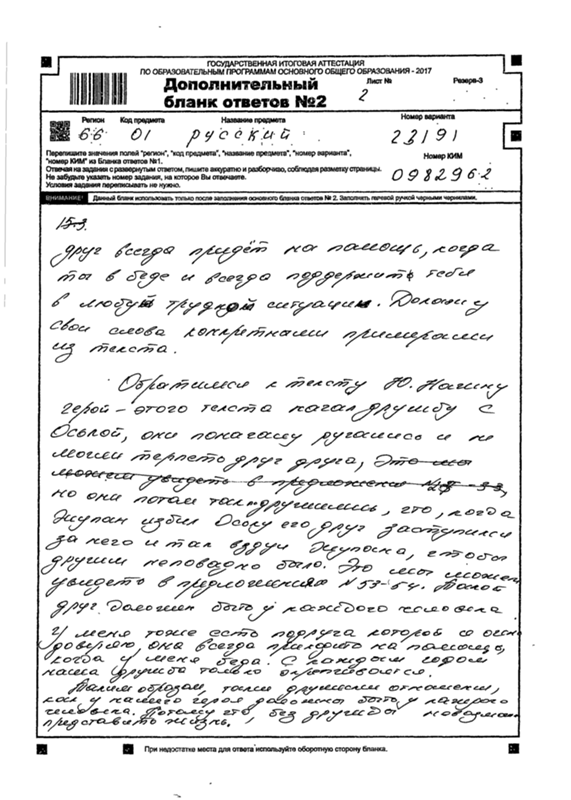 ГОСУДАРСТВЕННАЯ ИТОГОВАЯ АТТЕСТАЦИЯ
ПО ОБРАЗОВАТЕЛЬНЫМ ПРОГРАММАМ ОСНОВНОГО ОБЩЕГО ОБРАЗОВАНИЯ - 2017
Дополнительный Лист № Резерв-3
бланк ответов №2 2
Регион Код предмета Название предмета Номер варианта
66 01 русский 23191
Перепишите значения полей "регион", "код предмета", "название предмета", "номер варианта",
"номер КИМ" из Бланка ответов №1. Номер КИМ
Отвечая на задания с развернутым ответом, пишите аккуратно и разборчиво, соблюдая разметку страницы.
Не забудьте указать номер задания, на которое Вы отвечаете. 0982962
Условия задания переписывать не нужно.
ВНИМАНИЕ! Данный бланк использовать только после заполнения основного бланка ответов № 2. Заполнять гелевой ручкой черными чернилами.
15.3.
друг всегда придёт на помощь, когда
ты в беде и всегда поддержить тебя
в любой трудной ситуации. Докажу
свои слова конкретнами примерами
из текста.
Обратимся к тексту Ю. Нагину
герой - этого текста начал дружбу с
Оськой, они поначалу ругались и не
могли терпеть друг друга, Это мы
можем увидеть в предложении
но они потом так друшились, что, когда
Жупан избил Осоку его друг заступился
за него и так вздул Жупана, чтобы
другим неповадно было. Это мы можем
увидеть в предложениях №53-54. Такой
друг должен быть у каждого человека.
У меня тоже есть подруга которой я
доверяю, она всегда приходит на помощь,
когда у меня беда. С каждым годом
наша дружба только
Таким образом, такие дружеские отношения,
как у нашего героя должны быть у каждого
человека. Потому что, без дружбы невозможно
представить жизнь.
При недостатке места для ответа используйте оборотную сторону бланка.